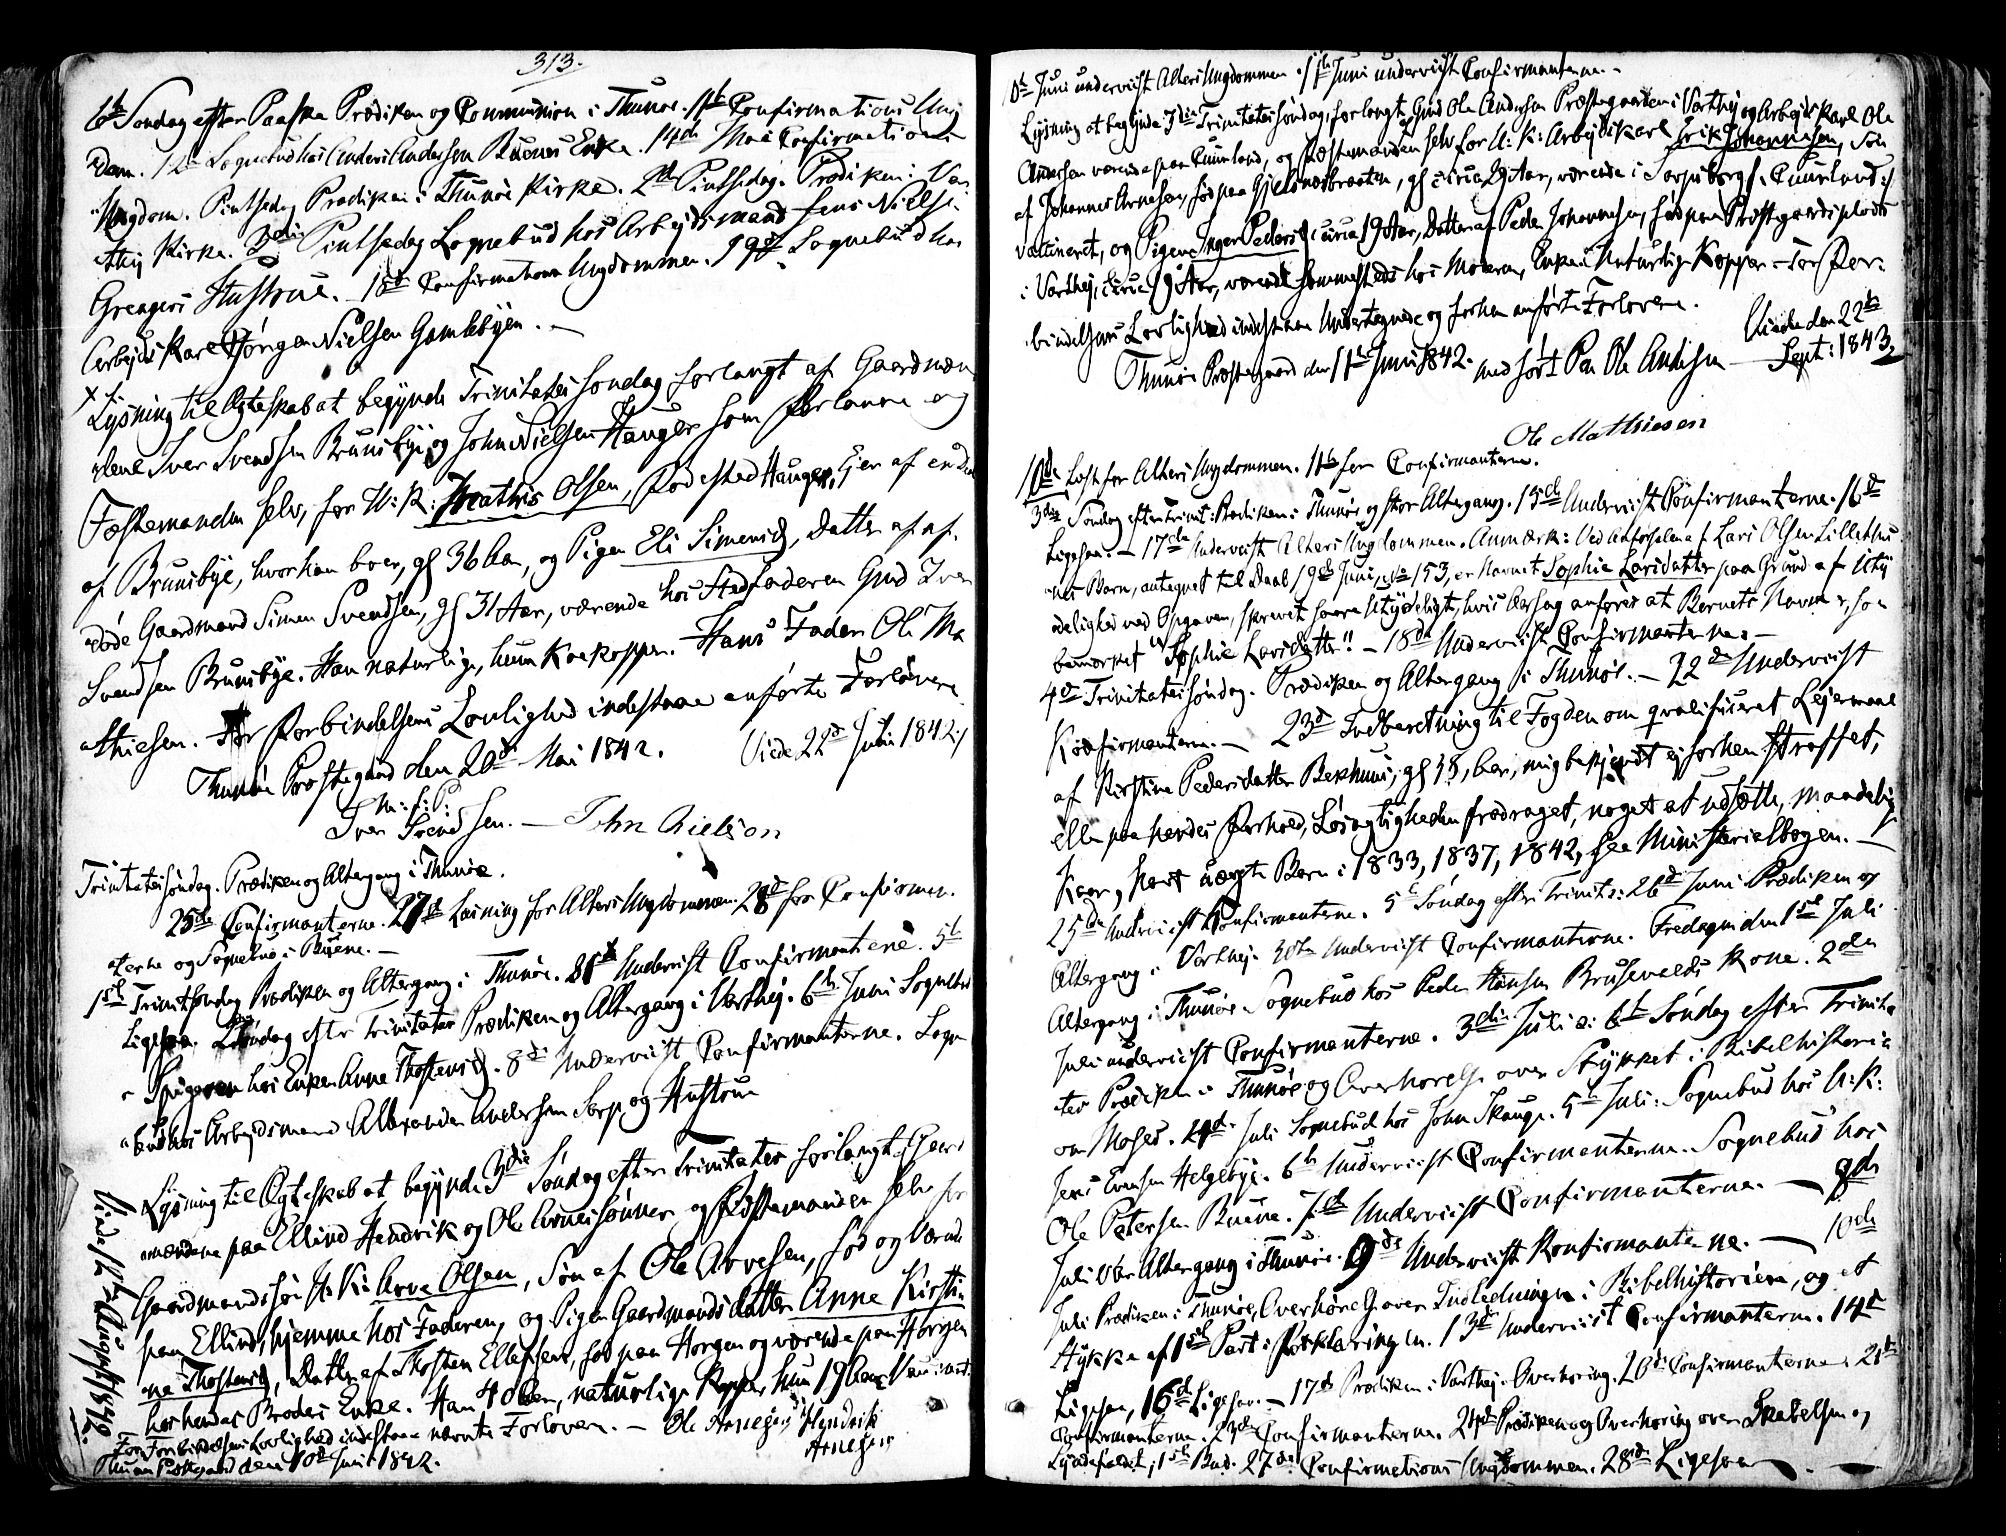 313.
6te Søndag efter Paaske Prædiken og Communion i Thunøe. 11te Confirmations Ung
dom. 12te Sognebud hos Anders Andersen Buenes Enke. 14de Mai Confirmations
Ungdom. Pintsedag Prædiken i Thunøe Kirke. 2den Pintsedag. Prædiken i Var
thej Kirke. 3die Pintsedag Sognebud hos Arbejdsmand Jens Nielsen
Grengers Hustrue. 18de Confirmations Ungdommen. 19de Sognebud hos
Arbejds Karl Jørgen Nielsen Gamlebyen. —
Lysning til Ægteskab at begynde Trinitatis Søndag forlangt af Gaardmæn
dene Iver Svendsen Bruusbye og John Nielsen Hauger som Forlovere og
Fæstemanden selv, for U: K: Mathis Olsen, Fødested Hauger, Ejer af en Deel
af Bruusbye, hvor han boer, gl 36 Aar, og Pigen Eli Simensd, Datter af af-
døde Gaardmand Simen Svendsen, gl 31 Aar, værende hos Stedfaderen Gmd Iver
Svendsen Bruusbye. Han naturlige, hun Koekopper. Hans Fader Ole Ma
thiesen. For Forbindelsens Lovlighed indestaae anførte Forlovere
Thunøe Præstegaard den 20de Mai 1842. Viede 22de Juli 1842
m: f: P:
Iver Svendsen. — John Nielson
Trinitatis søndag. Prædiken og Altergang i Thunøe.
25de Confirmanterne. 27de Læsning for Alters Ungdommen. 28de for Confirman
terne og Sognebud i Buene. —
1ste Trinit Søndag Prædiken og Altergang i Thunøe. 31te Underviist Confirmanterne. 5te
Ligesaa. Søndag efter Trinitatis Prædiken og Altergang i Varthej. 6te Juni Sognebud
hos Enken Anne Thostensd. 8de Underviist Confirmanterne. Sogne
bud hos Arbejdsmand Alexander Andersen Sorp og Hustrue
Lysning til Ægteskab at begynde 3die Søndag efter Trinitatis forlangt Gaard
mændene paa Ellind Hendrik og Ole Arnesønner og Fæstemanden selv for
Gaardmandssøn U: K: Arve Olsen, Søn af Ole Arvesen, fød og værende
paa Ellind, hjemme hos Faderen, og Pigen Gaardmandsdatter Anne Kirsti-
ne Thostensd, Datter af Thosten Ellefsen, fød paa Horgen og værende paa Horgen
hos hendes Broders Enke. Han 40 Aar, naturlige Kopper, hun 19 Aar, Vaccineret.
For Forbindelsens Lovlighed indestaae nævnte Forlovere. — Ole Arnesen Hendrik
Thunøe Præstegaard den 10de Juni 1842. Arnesen
Viede 12te August 1842.
10de Juni underviist Alters Ungdommen. 11te Juni underviist Confirmanterne. -
Lysning at begynde 3die Trinitatis Søndag, forlangt Gmd Ole Andersen Præstegaarden i Varthej og Arbejdskarl Ole
Andersen værende paa Cuurland, og Fæstemanden selv for U: K: Arbejdskarl Erik Johannesen, Søn
af Johannes Arnesen, fød paa Gjelsnæsbraaten, gl circa 29 Aar, værende i Sarpsborg i Cuurland
vaccineret, og Pigen Inger Pedersd circa 19 Aar, Datter af Peder Johannesen, fød paa Præstegaardspladsen
i Varthej, circa 19 Aar, værende sammesteds hos Moderen, Enken. Naturlige Kopper. - For For-
bindelsens Lovlighed indestaae Undertegnede og forhen anførte Forlovere.
Thunøe Præstegaard den 11te Juni 1842. med ført Pen Ole Andersen — Viede den 22de
Sept: 1843
Ole Mathiesen
10de Læst for Alters Ungdommen. 11te for Confirmanterne.
3die Søndag efter Trinit: Prædiken i Thunøe og stor Altergang. 15de Underviist Confirmanterne. 16de
Ligesaa. — 17de Underviist Alters Ungdommen. Anmærk: Ved Anførselen af Lars Olsen Lillethu
nes Barn, antegnet til Daab 19de Juni, No 153, er Navnet Sophie Larsdatter paa Grund af Uty
delighed ved Opgaven, skrevet saare Utydeligt, hvis Aarsag anføres at Barnets Navn er, som
bemærket "Sophie Larsdatter"! — 18de Underviist Confirmanterne. —
4de Trinitatis søndag. Prædiken og Altergang i Thunøe. — 22de Underviist
Konfirmanterne. — 23de Indberetning til Fogden om qvalificeret Lejermaal
af Kirstine Pedersdatter Bekhuus, gl 38, har, mig bekjendt ej forhen straffet,
eller paa hendes Forhold, Løsagtigheden fradraget, noget at udsætte, maadelig
Kaar, havt uægte Børn i 1833, 1837, 1842, see Ministerialbogen. —
25de Underviist Confirmanterne. 5te Søndag efter Trinit: 26de Juni Prædiken og
Altergang i Varthej. 30te Underviist Confirmanterne. Fredagen den 1ste Juli
Altergang i Thunøe Sognebud hos Peder Hansen Brusevolds Kone. 2den
Juli underviist Confirmanterne. 3die Juli a: 6te Søndag efter Trinita
tis Prædiken i Thunøe og Overhørelse over Stykket i Bibelhistorie
om Moses. 4de Juli Sognebud hos John Skauge. 5te Juli: Sognebud hos U: K:
Jens Evensen Helgebye. 6te Underviist Confirmanterne. Sognebud hos
Ole Petersen Buene. 7de Underviist Confirmanterne. — 8de
Juli var Altergang i Thunøe. 9de Underviist Konfirmanterne. — 10de
Juli Prædiken i Thunøe, Overhørelse over Indledningen i Bibelhistorien, og et
Stykke af 1ste Part i Forklaringen. 13de Underviist Confirmanterne. 14de
Ligesaa, 16de Ligesaa. — 17de Prædiken i Varthej. Overhøring. 20de Confirmanterne. 21de
Confirmanterne. 23de Confirmanterne. 24de Prædiken og Overhøring over Skabelsen og
Syndefaldet, 1ste Bud. 27de Confirmations Ungdommen. 28de Ligesaa —